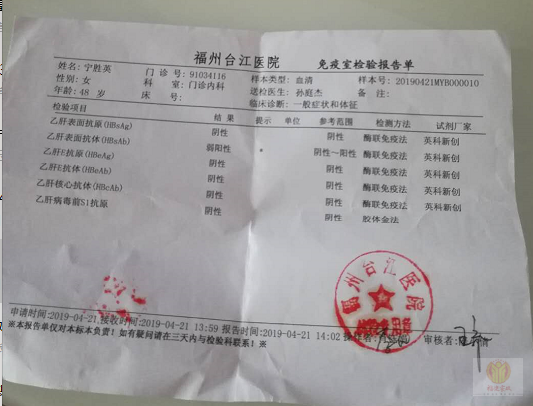 福州台江医院 免疫室检验报告单
姓名:宁胜英 门诊号:91034116 样本类型:血清 样本号:20190421MYB000010
性别:女 科室:门诊内科 送检医生:孙庭杰 备注:
年龄:48 岁 床号: 临床诊断:一般症状和体征
检验项目 结果 提示 单位 参考范围 检测方法 试剂厂家
乙肝表面抗原(HBsAg) 阴性 阴性 酶联免疫法 英科新创
乙肝表面抗体(HBsAb) 弱阳性 阴性～阳性 酶联免疫法 英科新创
乙肝E抗原(HBeAg) 阴性 阴性 酶联免疫法 英科新创
乙肝E抗体(HBeAb) 阴性 阴性 酶联免疫法 英科新创
乙肝核心抗体(HBcAb) 阴性 阴性 酶联免疫法 英科新创
乙肝病毒前S1抗原 阴性 阴性 胶体金法
福州台江医院
申请时间:2019-04-21,接收时间:2019-04-21 13:59 报告时间:2019-04-21 14:02 操作者: 审核者:
※本报告单仅对本标本负责!如有疑问请在三天内与检验科联系!※